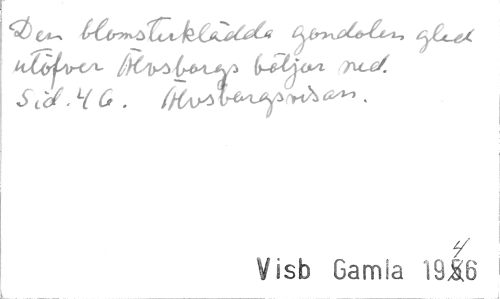 Den blomsterklädda gondolen gled
utöfver Älvsborgs böljor ned.
Sid. 46. Älvsborgsvisan.
Visb Gamla 1946